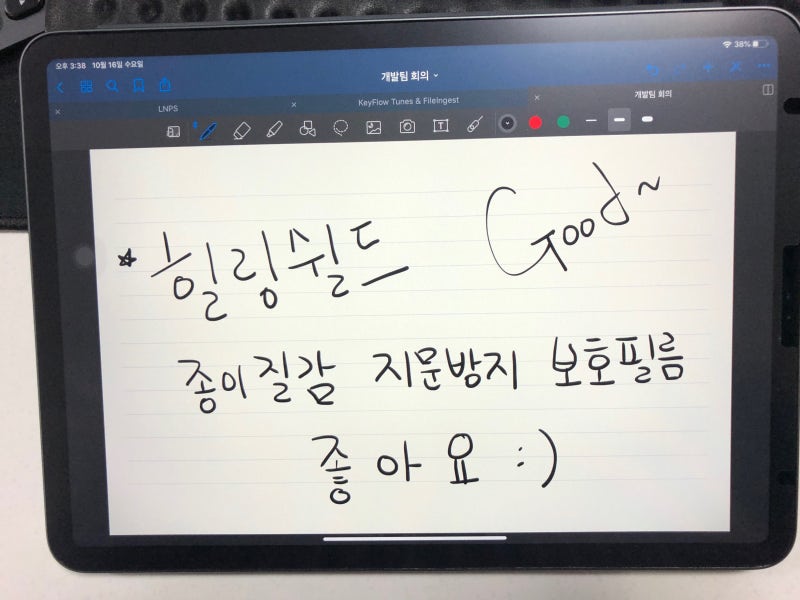 오후 3:38 10월 16일 수요일
38%
개발팀 회의
LNPS
KeyFlow Tunes & Fileingest
개발팀 회의
T
Good~
힐링쉴드
종이질감 지문방지 보호필름
좋아요 :)